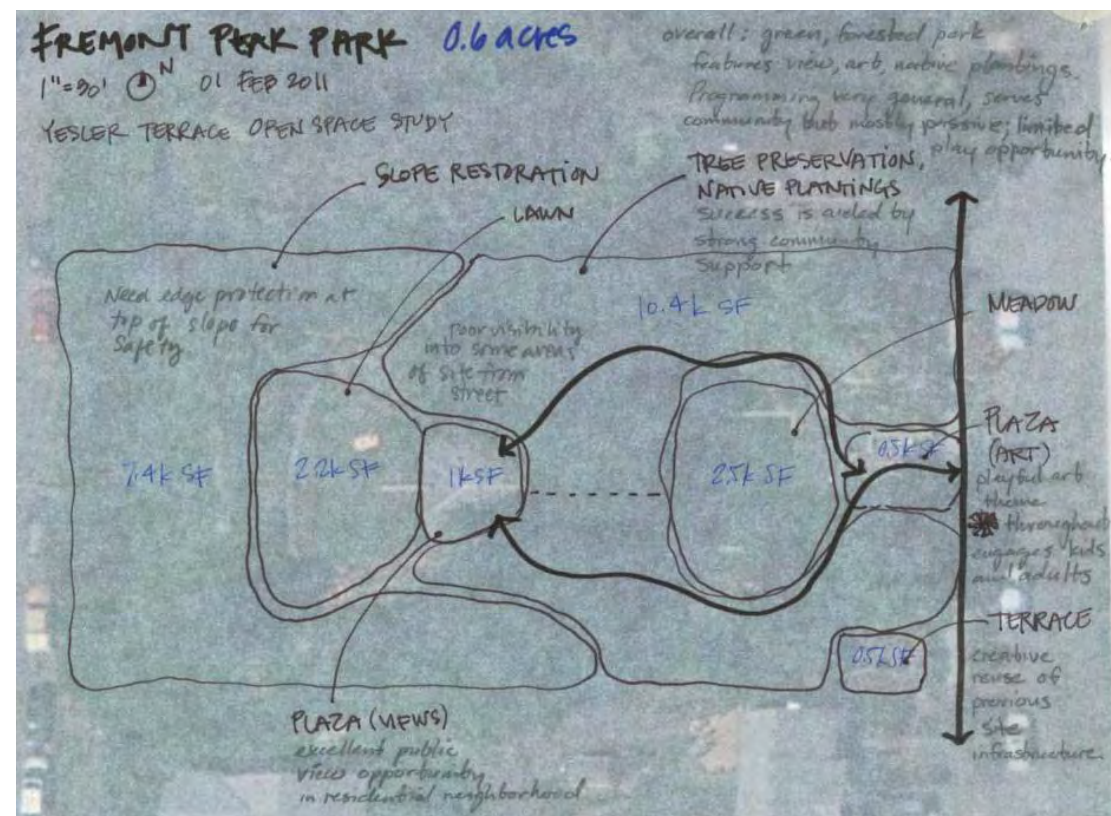 FREMONT PEAK PARK 0.6 acres
1"=30' N 01 FEB 2011
YESLER TERRACE OPEN SPACE STUDY
overall: green, forested park
features view, art, native plantings.
Programming very general, serves
community but mostly passive; limited
play opportunity
SLOPE RESTORATION
LAWN
TREE PRESERVATION,
NATIVE PLANTINGS
success is aided by
strong community
support
Need edge protection at
top of slope for
Safety
Poor visibility
into some areas
of site from
street
10.4k SF
MEADOW
7.4k SF
2.2k SF
1k SF
2.5k SF
0.5k SF
PLAZA
(ART)
playful art
theme
throughout
engages kids
and adults
TERRACE
0.5k SF
creative
reuse of
previous
site
infrastructure.
PLAZA (VIEWS)
excellent public
view opportunity
in residential neighborhood